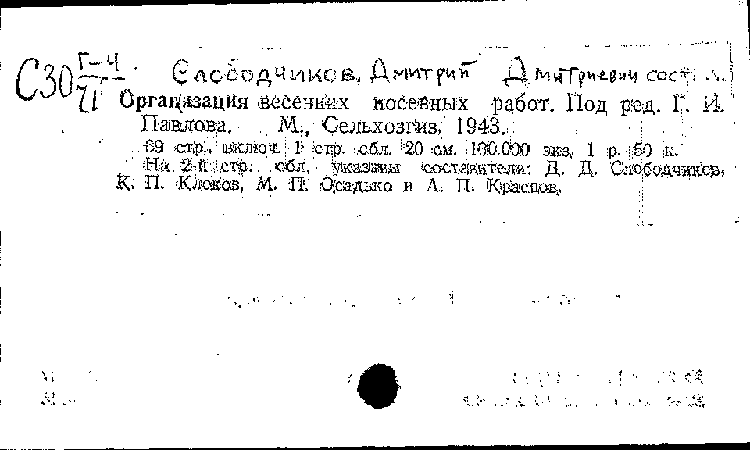 С30 Г-4/71 Слободчиков, Дмитрий Дмитриевич сост.
Организация весенних посевных работ. Под ред. Г. И.
Павлова. М., Сельхозгиз, 1943.
69 стр., включ. 1 стр. обл. 20 см. 100.000 экз. 1 р. 50 к.
На 2-й стр. обл. указаны составители: Д. Д. Слободчиков,
К. П. Клоков, М. П. Осадько и А. П. Краснов.